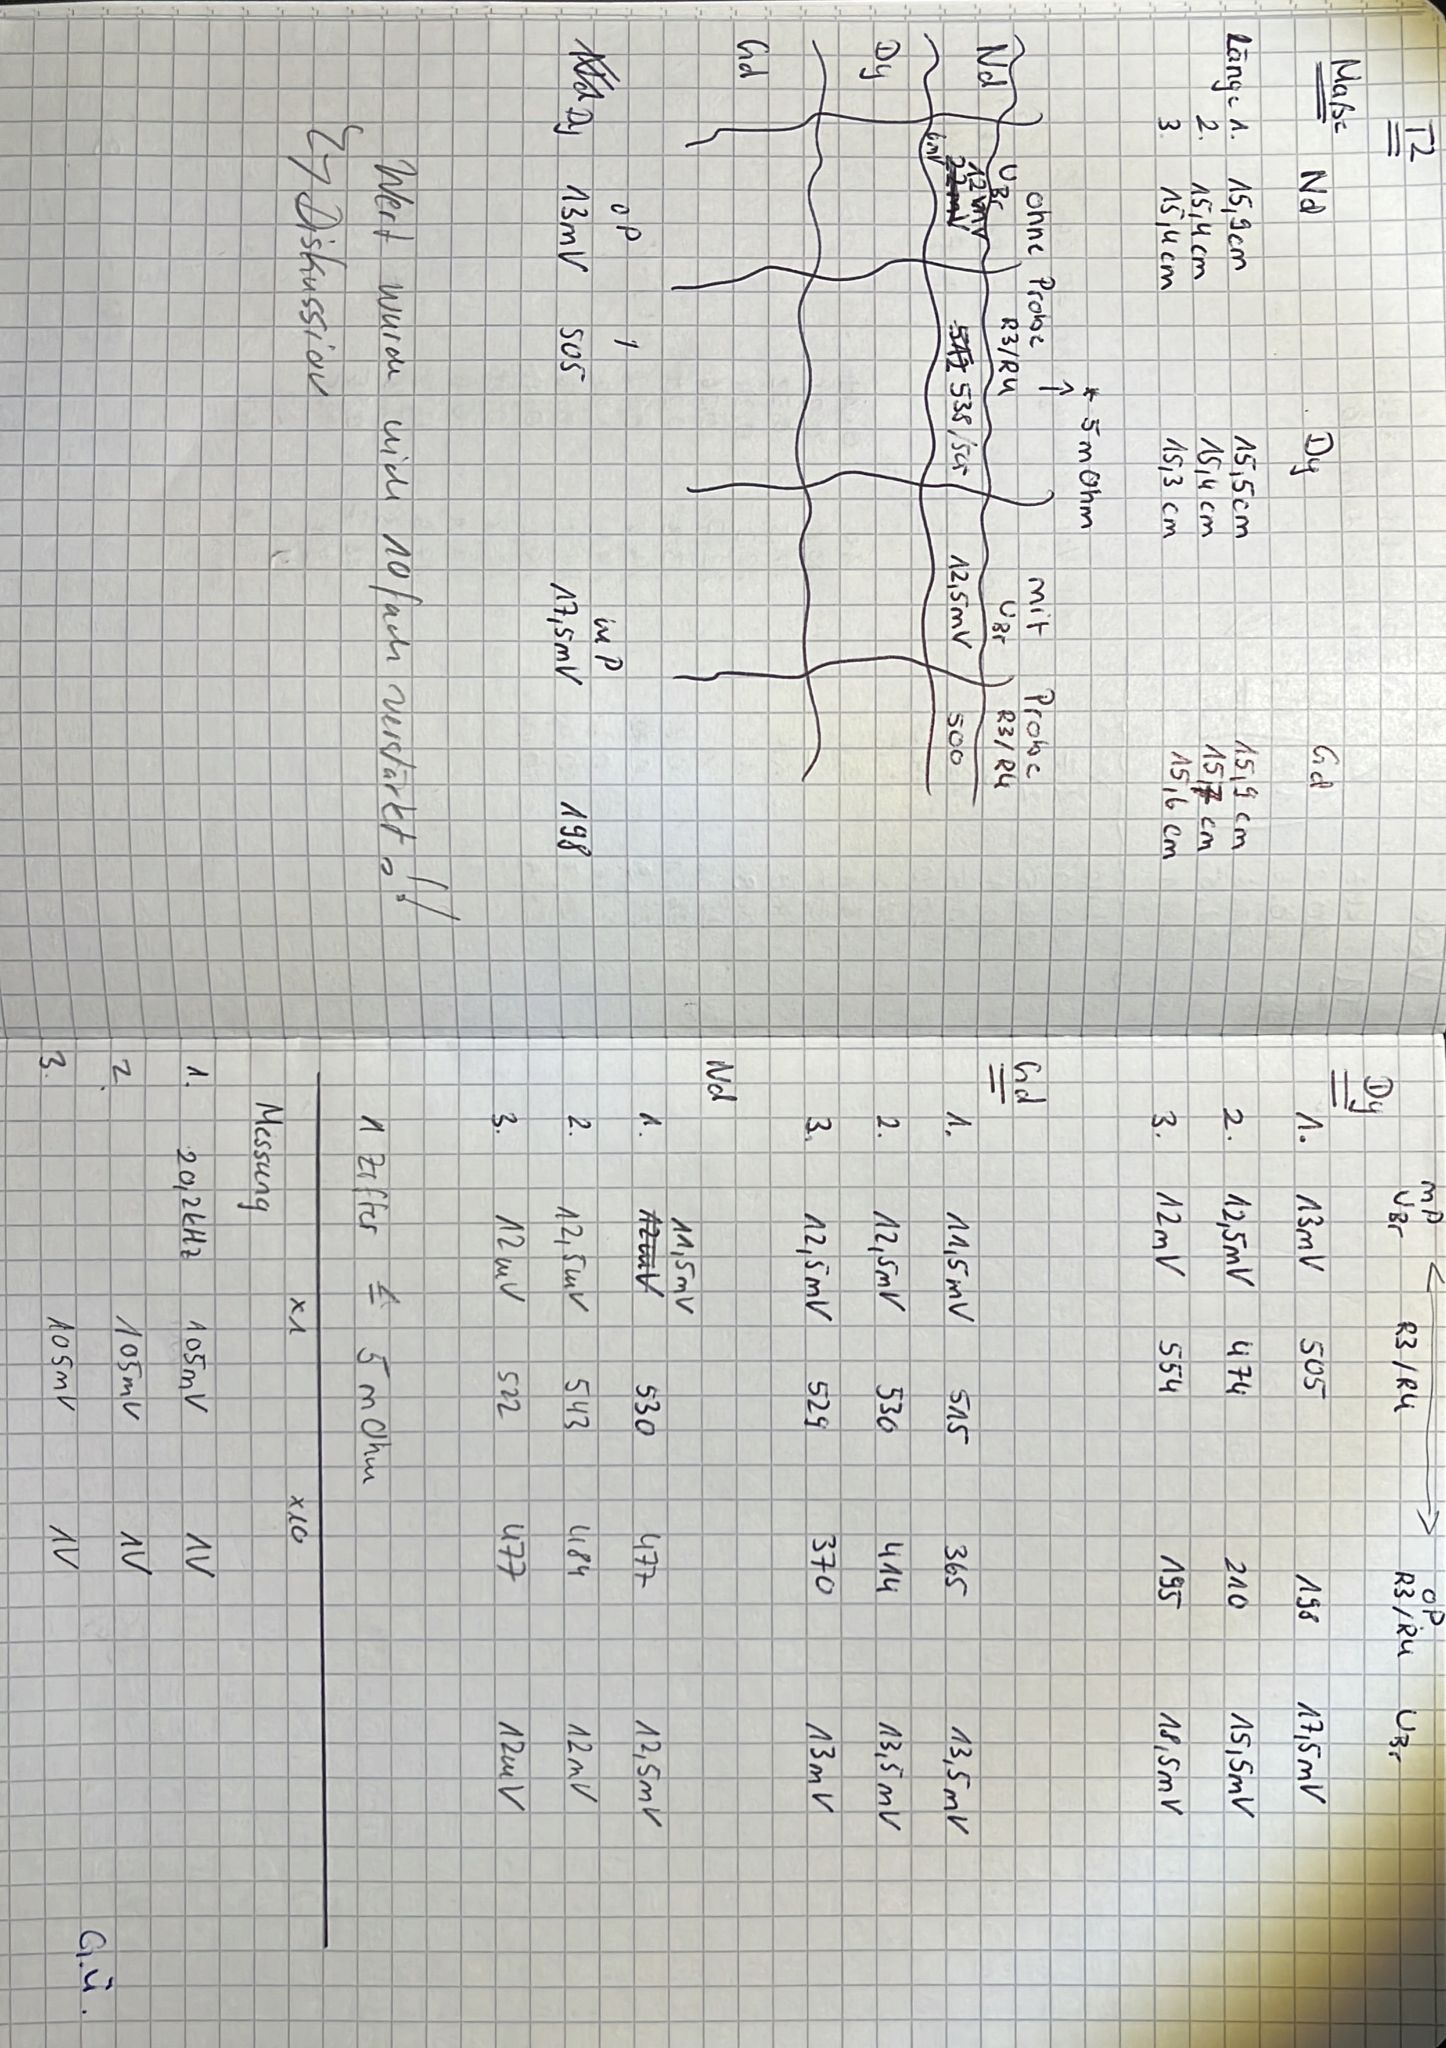 T2
Maße Nd Dy Gd
Länge 1. 15,9cm 15,5cm 15,9 cm
2. 15,4cm 15,4cm 15,7 cm
3. 15,4cm 15,3 cm 15,6 cm
* 5mOhm
↑
ohne Probe mit Probe
UBr R3/R4 UBr R3/R4
Nd 12mV 538 12,5mV 500
Dy
Gd
oP mP
Dy 13mV 505 17,5mV 198
Wert wurde nich 10fach verstärkt!!
↳ Diskussion
mP ↔ oP
UBr R3/R4 R3/R4 UBr
Dy
1. 13mV 505 198 17,5mV
2. 12,5mV 474 210 15,5mV
3. 12mV 554 195 18,5mV
Gd
1. 11,5mV 515 365 13,5mV
2. 12,5mV 530 414 13,5mV
3. 12,5mV 529 370 13mV
Nd
11,5mV
1. 12mV 530 477 12,5mV
2. 12,5mV 543 484 12mV
3. 12mV 522 477 12mV
1 Ziffer ≙ 5 mOhm
Messung x1 x10
1. 20,2kHz 105mV 1V
2. 105mV 1V
3. 105mV 1V